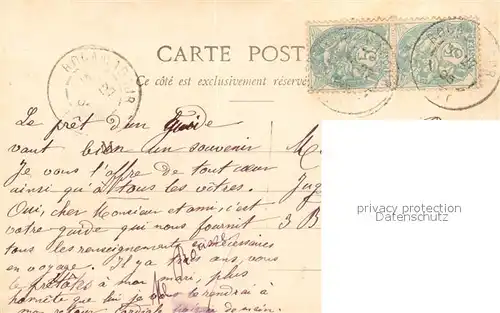 CARTE POST
Ce côté est exclusivement réservé
ROCAMADOUR
Le prêt d'un Guide
vaut bien un souvenir
Je vous l'offre de tout cœur
ainsi qu'à tous les vôtres.
Oui, cher Monsieur et ami, c'est
votre guide qui nous fournit
tous les renseignements nécessaires
en voyage. Il y a trois ans, vous
le prêtâtes à mon mari, plus
honnête que lui je vous le rendrai à
mon retour
M.
Jug
3 B
privacy protection
Datenschutz